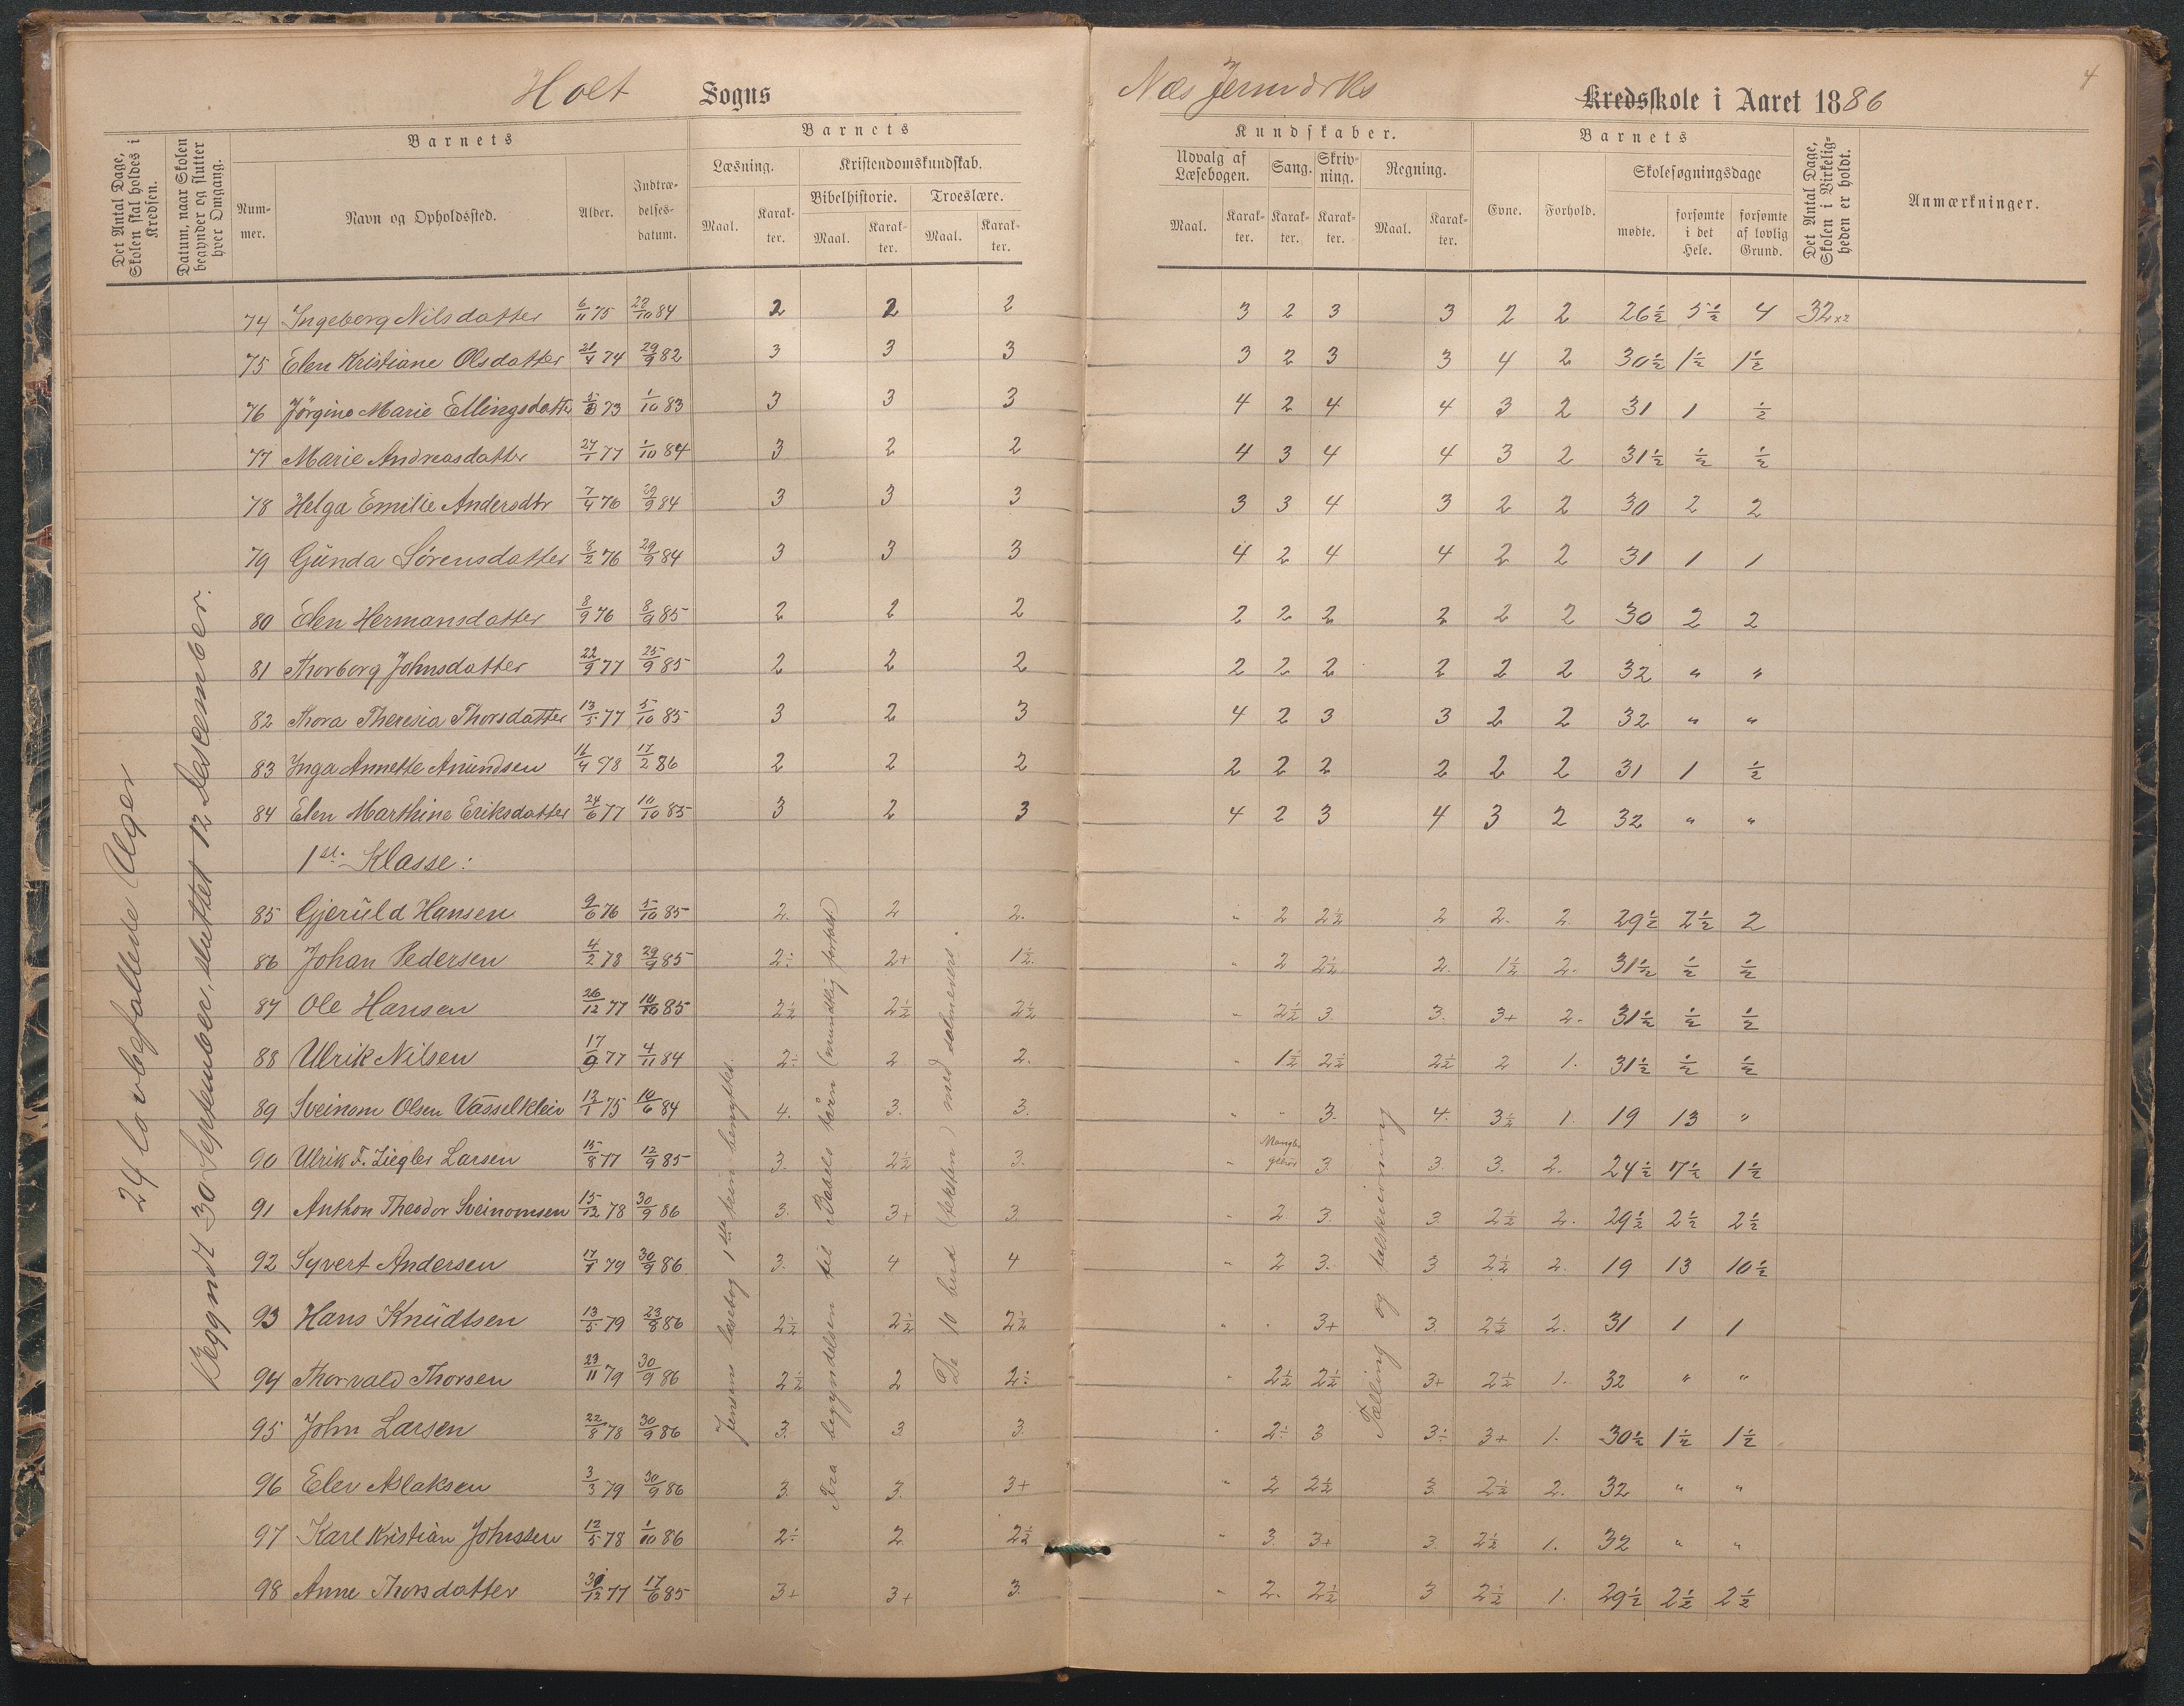 Holt Sogns
Næs Jernværks Kredsskole i Aaret 1886
4
Det Antal Dage, Skolen skal holdes i Kredsen.
Datum, naar Skolen begynder og slutter hver Omgang.
Barnets
Nummer.
Navn og Opholdssted.
Alder.
Indtrædelsesdatum.
Barnets
Læsning.
Maal.
Karakter.
Kristendomskundskab.
Bibelhistorie.
Maal.
Karakter.
Troeslære.
Maal.
Karakter.
Kundskaber.
Udvalg af Læsebogen.
Maal.
Karakter.
Sang.
Karakter.
Skrivning.
Karakter.
Regning.
Maal.
Karakter.
Barnets
Evne.
Forhold.
Skolesøgningsdage
mødte.
forsømte i det Hele.
forsømte af lovlig Grund.
Det Antal Dage, Skolen i Virkeligheden er holdt.
Anmærkninger.
24 lovbefallede Uger
Begyndt 30 September, sluttet 12 Desember.
74 Ingeborg Nilsdatter 6/11 75 22/10 84 2 2 2 3 2 3 3 2 2 26½ 5½ 4 32 x2
75 Elen Kristiane Olsdatter 21/4 74 29/9 82 3 3 3 3 2 3 3 4 2 30½ 1½ 1½
76 Jörgine Marie Ellingsdatte 73 1/10 83 3 3 3 4 2 4 4 3 2 31 1 ½
77 Marie Andreasdatter 27/1 77 1/10 84 3 2 2 4 3 4 4 3 2 31½ ½ ½
78 Helga Emilie Andersdtr 7/4 76 29/9 84 3 3 3 3 3 4 3 2 2 30 2 2
79 Gŭnda Sörensdatter 8/2 76 29/9 84 3 3 3 4 2 4 4 2 2 31 1 1
80 Elen Hermansdatter 8/9 76 8/9 85 2 2 2 2 2 2 2 2 2 30 2 2
81 Thorborg Johnsdatter 22/9 77 25/9 85 2 2 2 2 2 2 2 2 2 32 " "
82 Thora Theresia Thorsdatter 13/5 77 5/10 85 3 2 3 4 2 3 3 2 2 32 " "
83 Inga Annette Anundsen 16/4 78 17/2 86 2 2 2 2 2 2 2 2 2 31 1 ½
84 Elen Marthine Eriksdatter 24/6 77 10/10 85 3 2 3 4 2 3 4 3 2 32 " "
1st. Klasse:
85 Gjerŭld Hansen 9/6 76 5/10 85 2. 2 2. " 2 2½ 2 2. 2. 29½ 2½ 2
86 Johan Pedersen 4/2 78 29/9 85 2÷ 2+ 1½. " 2 2½ 2. 1½ 2. 31½ ½ ½
87 Ole Hansen 26/12 77 10/10 85 2½ 2½ 2½ " 2½ 3. 3. 3+ 2. 31½ ½ ½
88 Ulrik Nilsen 17/9 77 4/11 84 2÷ 2 2. " 1½ 2½ 2½ 2 1. 31½ ½ ½
89 Sveinom Olsen Vasselkleiv 12/1 75 10/6 84 4. 3. 3. " " 3. 4. 3½ 1. 19 13 "
90 Ulrik F. Ziegler Larsen 15/8 77 12/9 85 3. 2½ 3. " Mangler gehør 3. 3. 3. 2. 24½ 7½ 1½
91 Anthon Theodor Sveinomsen 15/12 78 30/9 86 3. 3+ 3. " 2. 3. 3. 2½ 2. 29½ 2½ 2½
92 Syvert Andersen 17/1 79 30/9 86 3. 4. 4 " 2 3. 3 2½ 2. 19 13 10½
93 Hans Knŭdtsen 13/5 79 23/8 86 2½ 2½ 2½ " " 3+ 3. 2½ 2. 31 1 1
94 Thorvald Thorsen 23/11 79 30/9 86 2½ 2 2÷ " 2½ 2½ 3+ 2½ 1. 32 " "
95 John Larsen 22/8 78 30/9 86 3. 3. 3. " 2÷ 3 3÷ 3+ 1. 30½ 1½ 1½
96 Elev Aslaksen 3/3 79 30/9 86 3. 3. 3+ " 2 2½ 3. 2½ 2. 32 " "
97 Karl Kristian Johnssen 12/5 78 1/10 86 2÷ 2. 2½ " 3. 3+ 3. 2½ 1. 32 " "
98 Anne Thorsdatter 30/12 77 17/6 85 3+ 3+ 3. " 2. 2½ 3 2½ 1. 29½ 2½ 2½
Jensens læsebog 1ste trin benyttet.
Fra begyndelsen til Babels tårn (mundtlig fortalt)
De 10 bud (teksten) med
Tælling og talskrivning